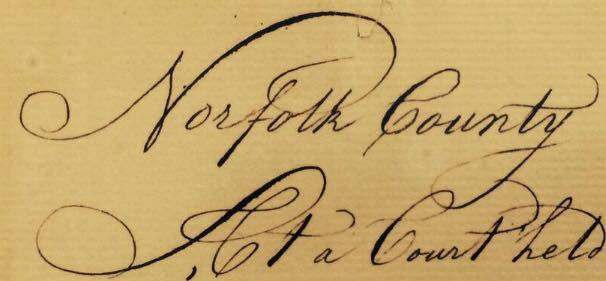 Norfolk County
At a Court held